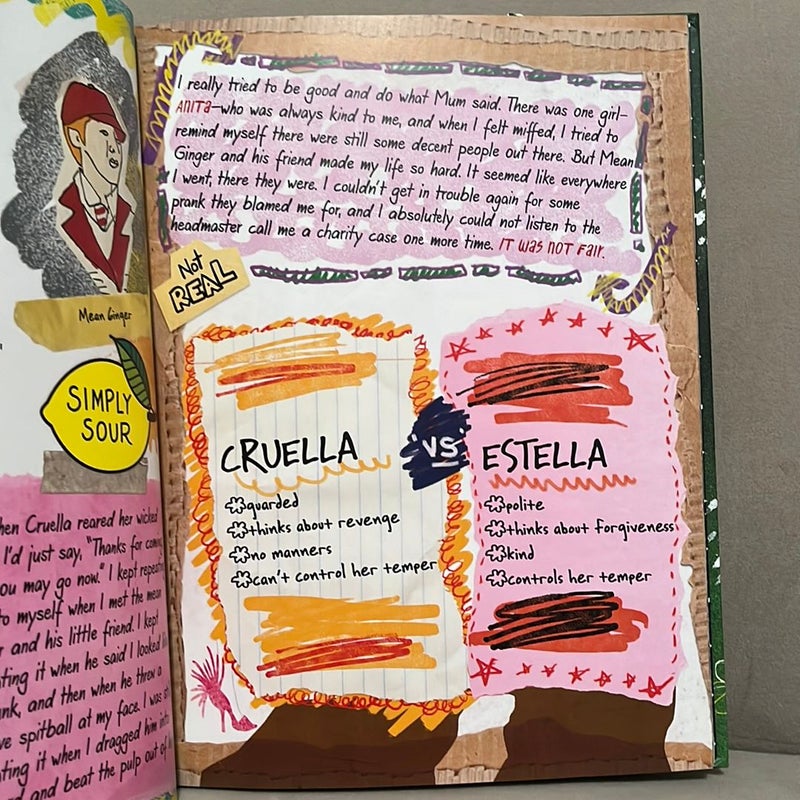 Mean Ginger
SIMPLY
SOUR
hen Cruella reared her wicked
I'd just say, "Thanks for coming
ou may go now." I kept repeat
to myself when I met the mean
r and his little friend. I kept
ting it when he said I looked li
nk, and then when he threw a
ve spitball at my face. I was st
ting it when I dragged him into
d and beat the pulp out of
I really tried to be good and do what Mum said. There was one girl—
ANITA—who was always kind to me, and when I felt miffed, I tried to
remind myself there were still some decent people out there. But Mean
Ginger and his friend made my life so hard. It seemed like everywhere
I went, there they were. I couldn't get in trouble again for some
prank they blamed me for, and I absolutely could not listen to the
headmaster call me a charity case one more time. IT WAS NOT FAIR.
Not
REAL
CRUELLA
guarded
thinks about revenge
no manners
can't control her temper
VS
ESTELLA
polite
thinks about forgiveness
kind
controls her temper